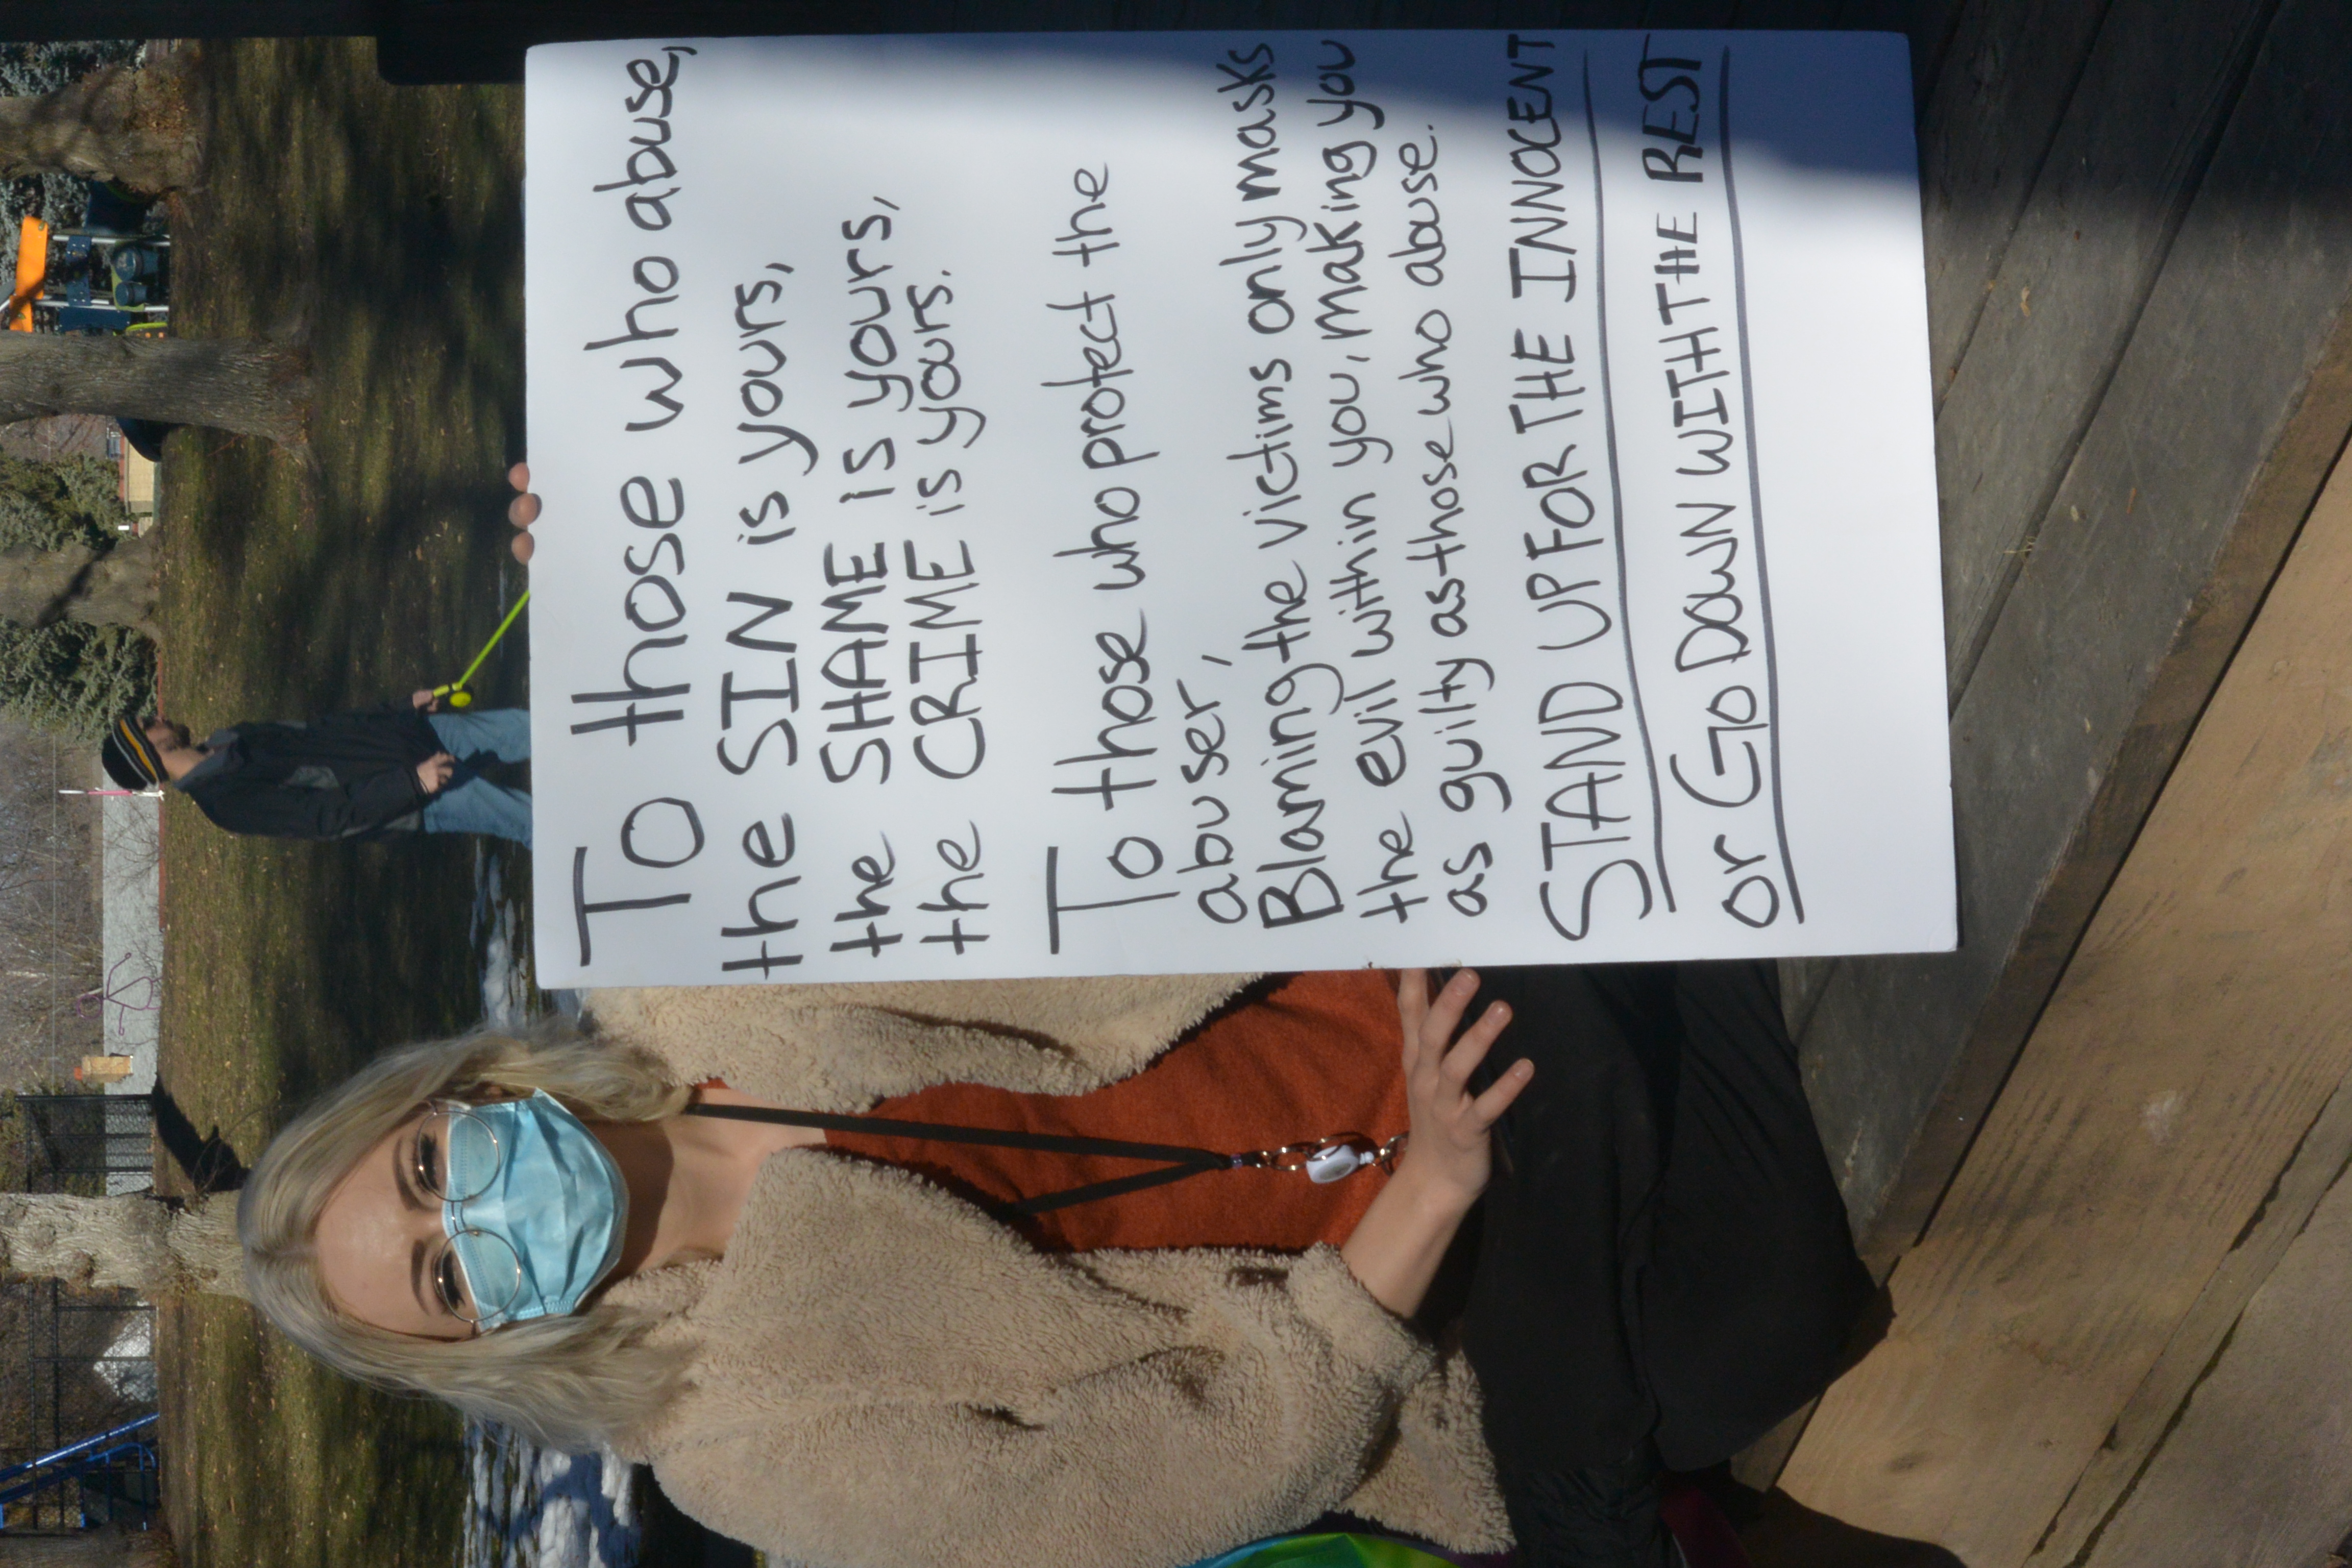 To those who abuse,
the SIN is yours,
the SHAME is yours,
the CRIME is yours.
To those who protect the
abuser,
Blaming the victims only masks
the evil within you, making you
as guilty as those who abuse.
STAND UP FOR THE INNOCENT
or GO DOWN WITH THE REST